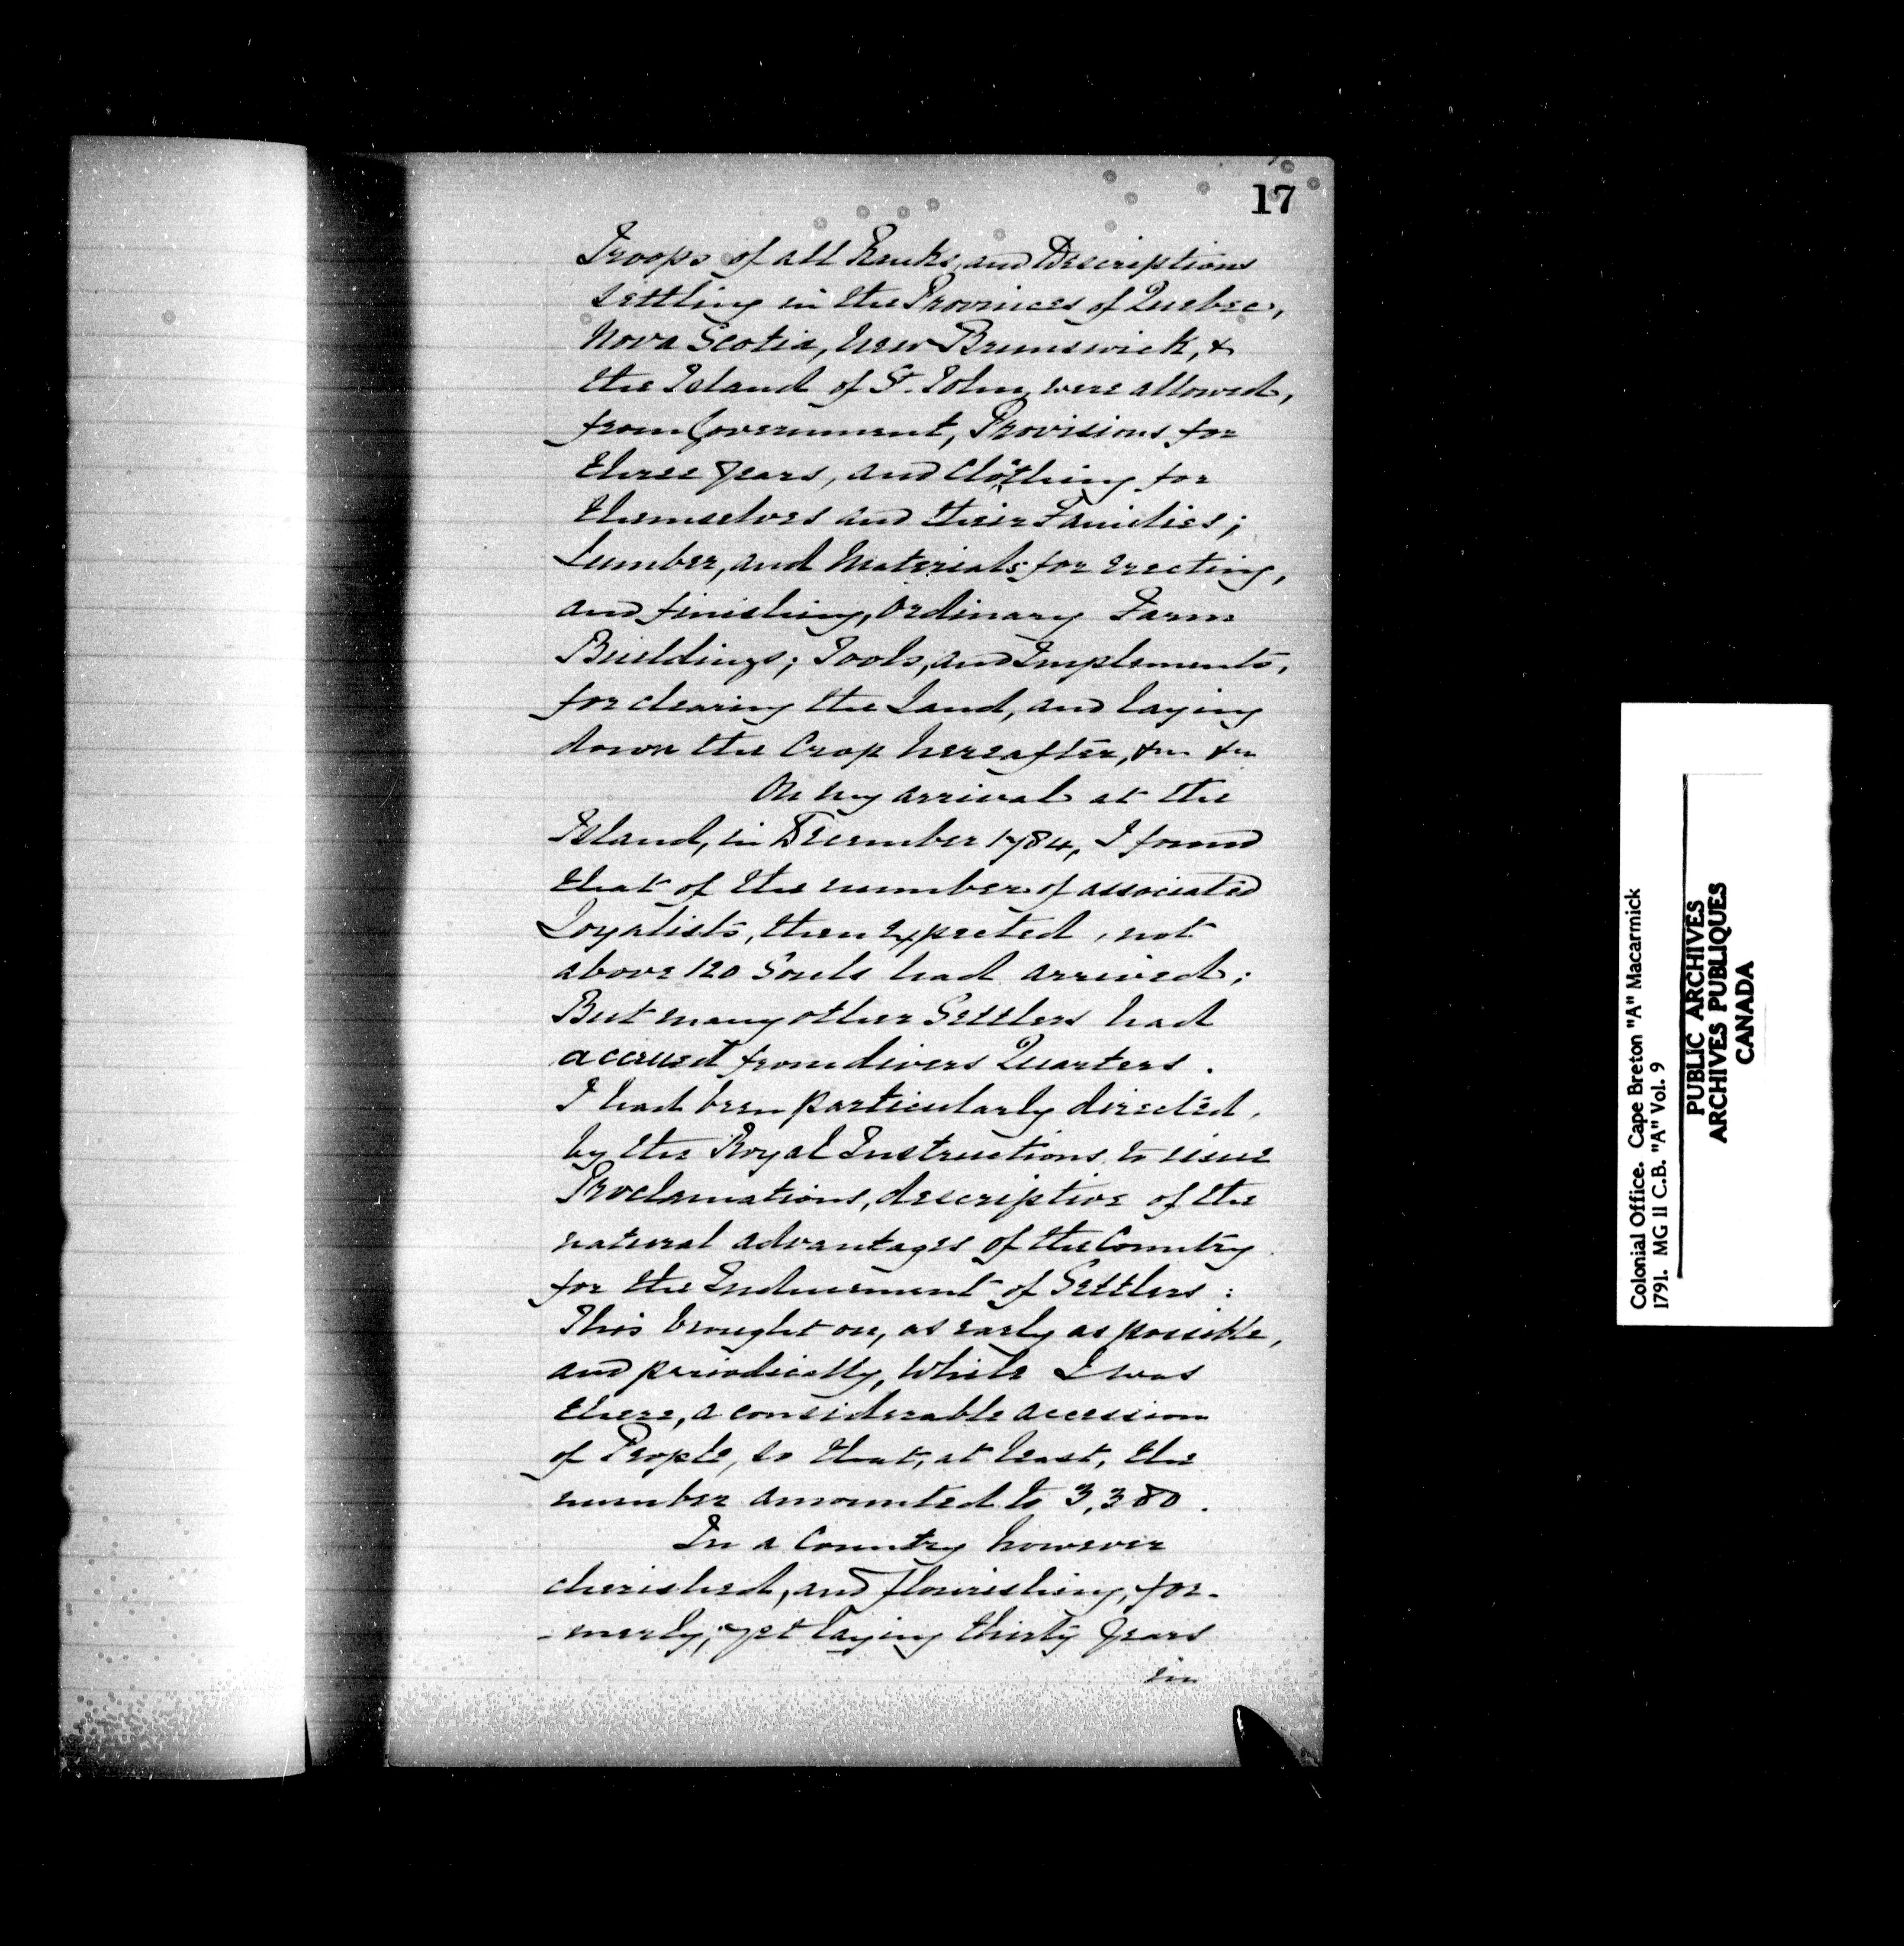 17
Troops of all Ranks, and Descriptions
settling in the Provinces of Quebec,
Nova Scotia, New Brunswick, &
the Island of St. John, were allowed,
from Government, Provisions for
three years, and Clothing for
themselves and their Families;
Lumber, and Materials for erecting,
and finishing, ordinary Farm
Buildings; Tools, and Implements,
for clearing the Land, and laying
down the Crop hereafter, &c &c
On my arrival at the
Island, in December 1784, I found
that of the number of associated
Loyalists, then expected, not
above 120 Souls had arrived;
But many other Settlers had
accrued from divers Quarters.
I had been particularly directed,
by the Royal Instructions, to issue
Proclamations, descriptive of the
natural advantages of the Country
for the Inducement of Settlers:
This brought on, as early as possible,
and periodically, while I was
there, a considerable accession
of People, so that, at least, the
number amounted to 3,380.
In a Country however
cherished, and flourishing, for-
-merly, yet laying thirty years
in
Colonial Office. Cape Breton "A" Macarnick
1791. MG 11 C.B. "A" Vol. 9
PUBLIC ARCHIVES
ARCHIVES PUBLIQUES
CANADA